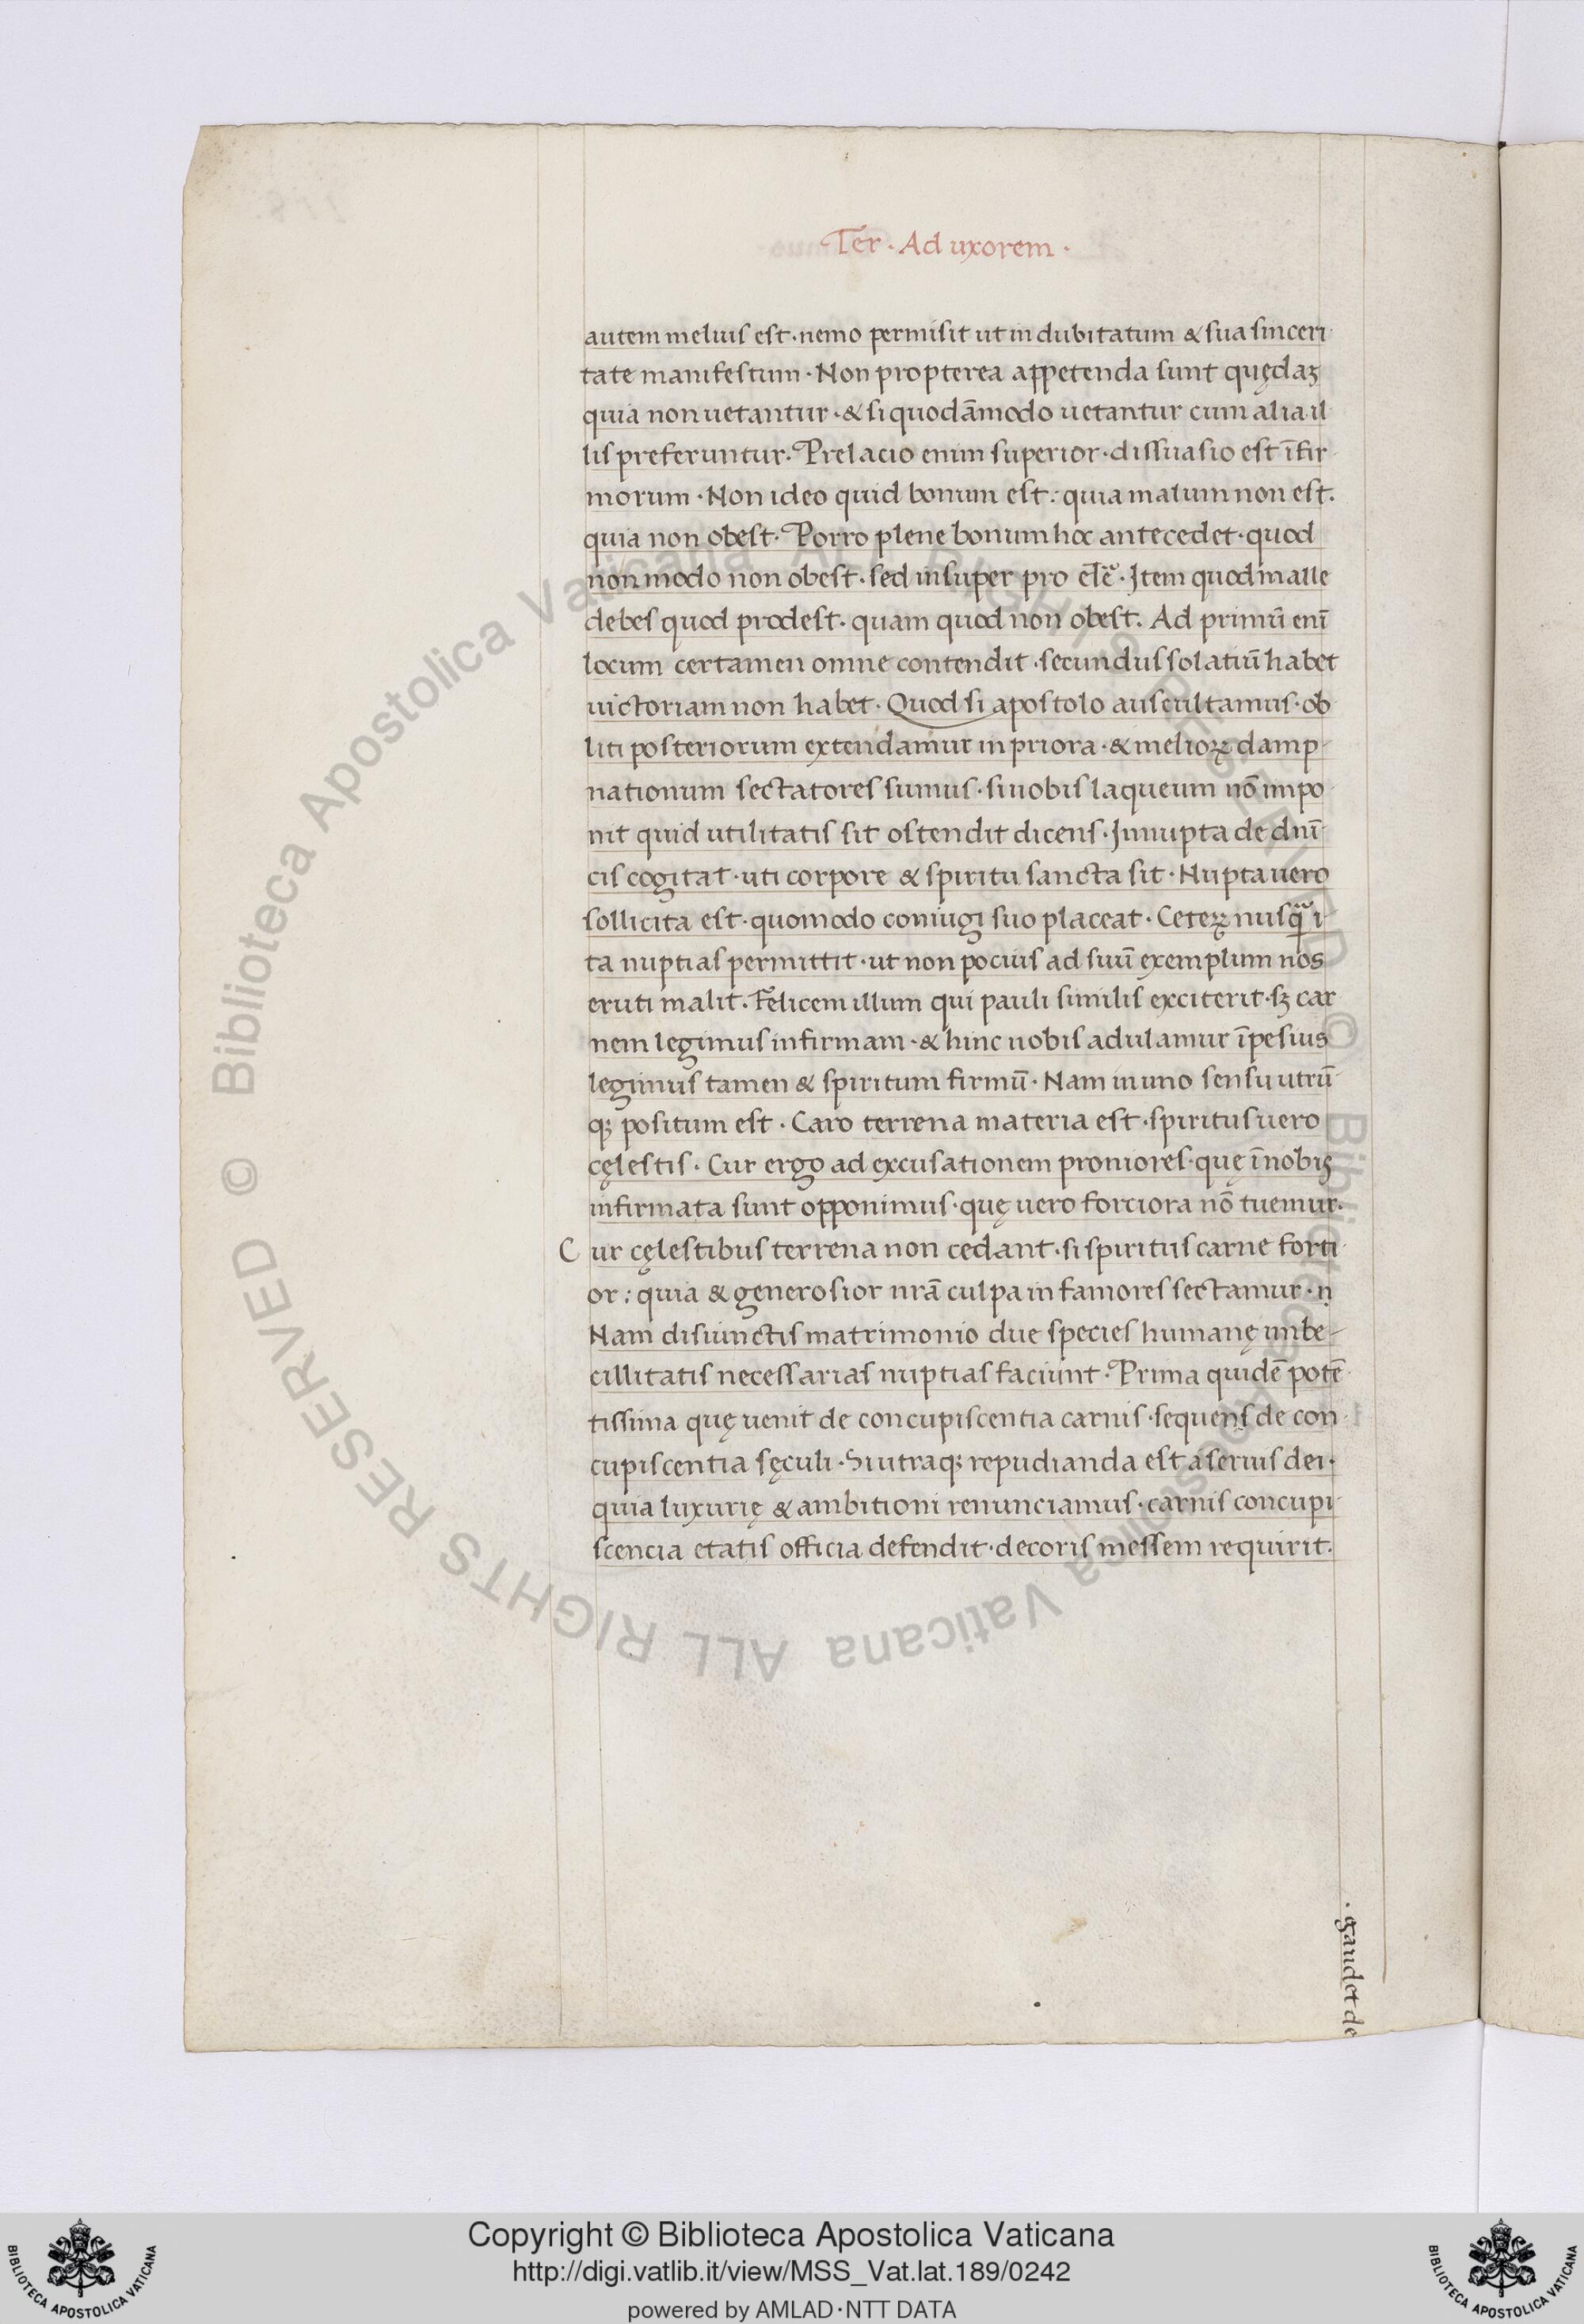 Ter · Ad uxorem ·
autem melius est · nemo permisit ut indubitatum & sua sinceri
tate manifestum · Non propterea appetenda sunt quędaȝ
quia non uetantur · & si quodāmodo uetantur cum alia il
lis preferuntur · Prelacio enim superior · dissuasio est īfir
morum · Non ideo quid bonum est : quia malum non est .
quia non obest · Porro plene bonum hoc antecedet · quod
non modo non obest · sed insuper pro · Item quod malle
debes quod prodest · quam quod non obest . Ad primū enī
locum certamen omne contendit · secundus solatiū habet
uictoriam non habet · Quod si apostolo auscultamus · ob
liti posteriorum extendamur in priora · & melioꝝ damp
nationum sectatores sumus · si uobis laqueum nō impo
nit quid utilitatis sit ostendit dicens · Innupta de dnī
cis cogitat · uti corpore & spiritu sancta sit · Nupta uero
sollicita est · quomodo coniugi suo placeat · Ceteꝝ nusqᷓ i
ta nuptias permittit · ut non pocius ad suū exemplum nos
eruti malit . Felicem illum qui pauli similis exciterit · sȝ car
nem legimus infirmam · & hinc nobis adulamur īpesius
legimus tamen & spiritum firmū · Nam in uno sensu utrū
qȝ positum est · Caro terrena materia est · spiritus uero
cęlestis · Cur ergo ad excusationem proniores · quę ī nobiȝ
infirmata sunt opponimus · quę uero forciora nō tuemur .
Cur cęlestibus terrena non cedant · si spiritus carne forti
or : quia & generosior nrā culpa infamores sectamur · ṇ
Nam disiunctis matrimonio due species humanę imbe
cillitatis necessarias nuptias faciunt · Prima quidē potē
tissima quę uenit de concupiscentia carnis · sequens de con
cupiscentia sęculi · Si utraqȝ repudianda est a seruis dei ·
quia luxurię & ambitioni renunciamus · carnis concupi
scencia etatis officia defendit · decoris messem requirit .
· gaudet de
© Biblioteca Apostolica Vaticana ALL RIGHTS RESERVED © Biblioteca Apostolica Vaticana ALL RIGHTS RESERVED
Copyright © Biblioteca Apostolica Vaticana
http://digi.vatlib.it/view/MSS_Vat.lat.189/0242
powered by AMLAD·NTT DATA
BIBLIOTECA APOSTOLICA VATICANA
BIBLIOTECA APOSTOLICA VATICANA